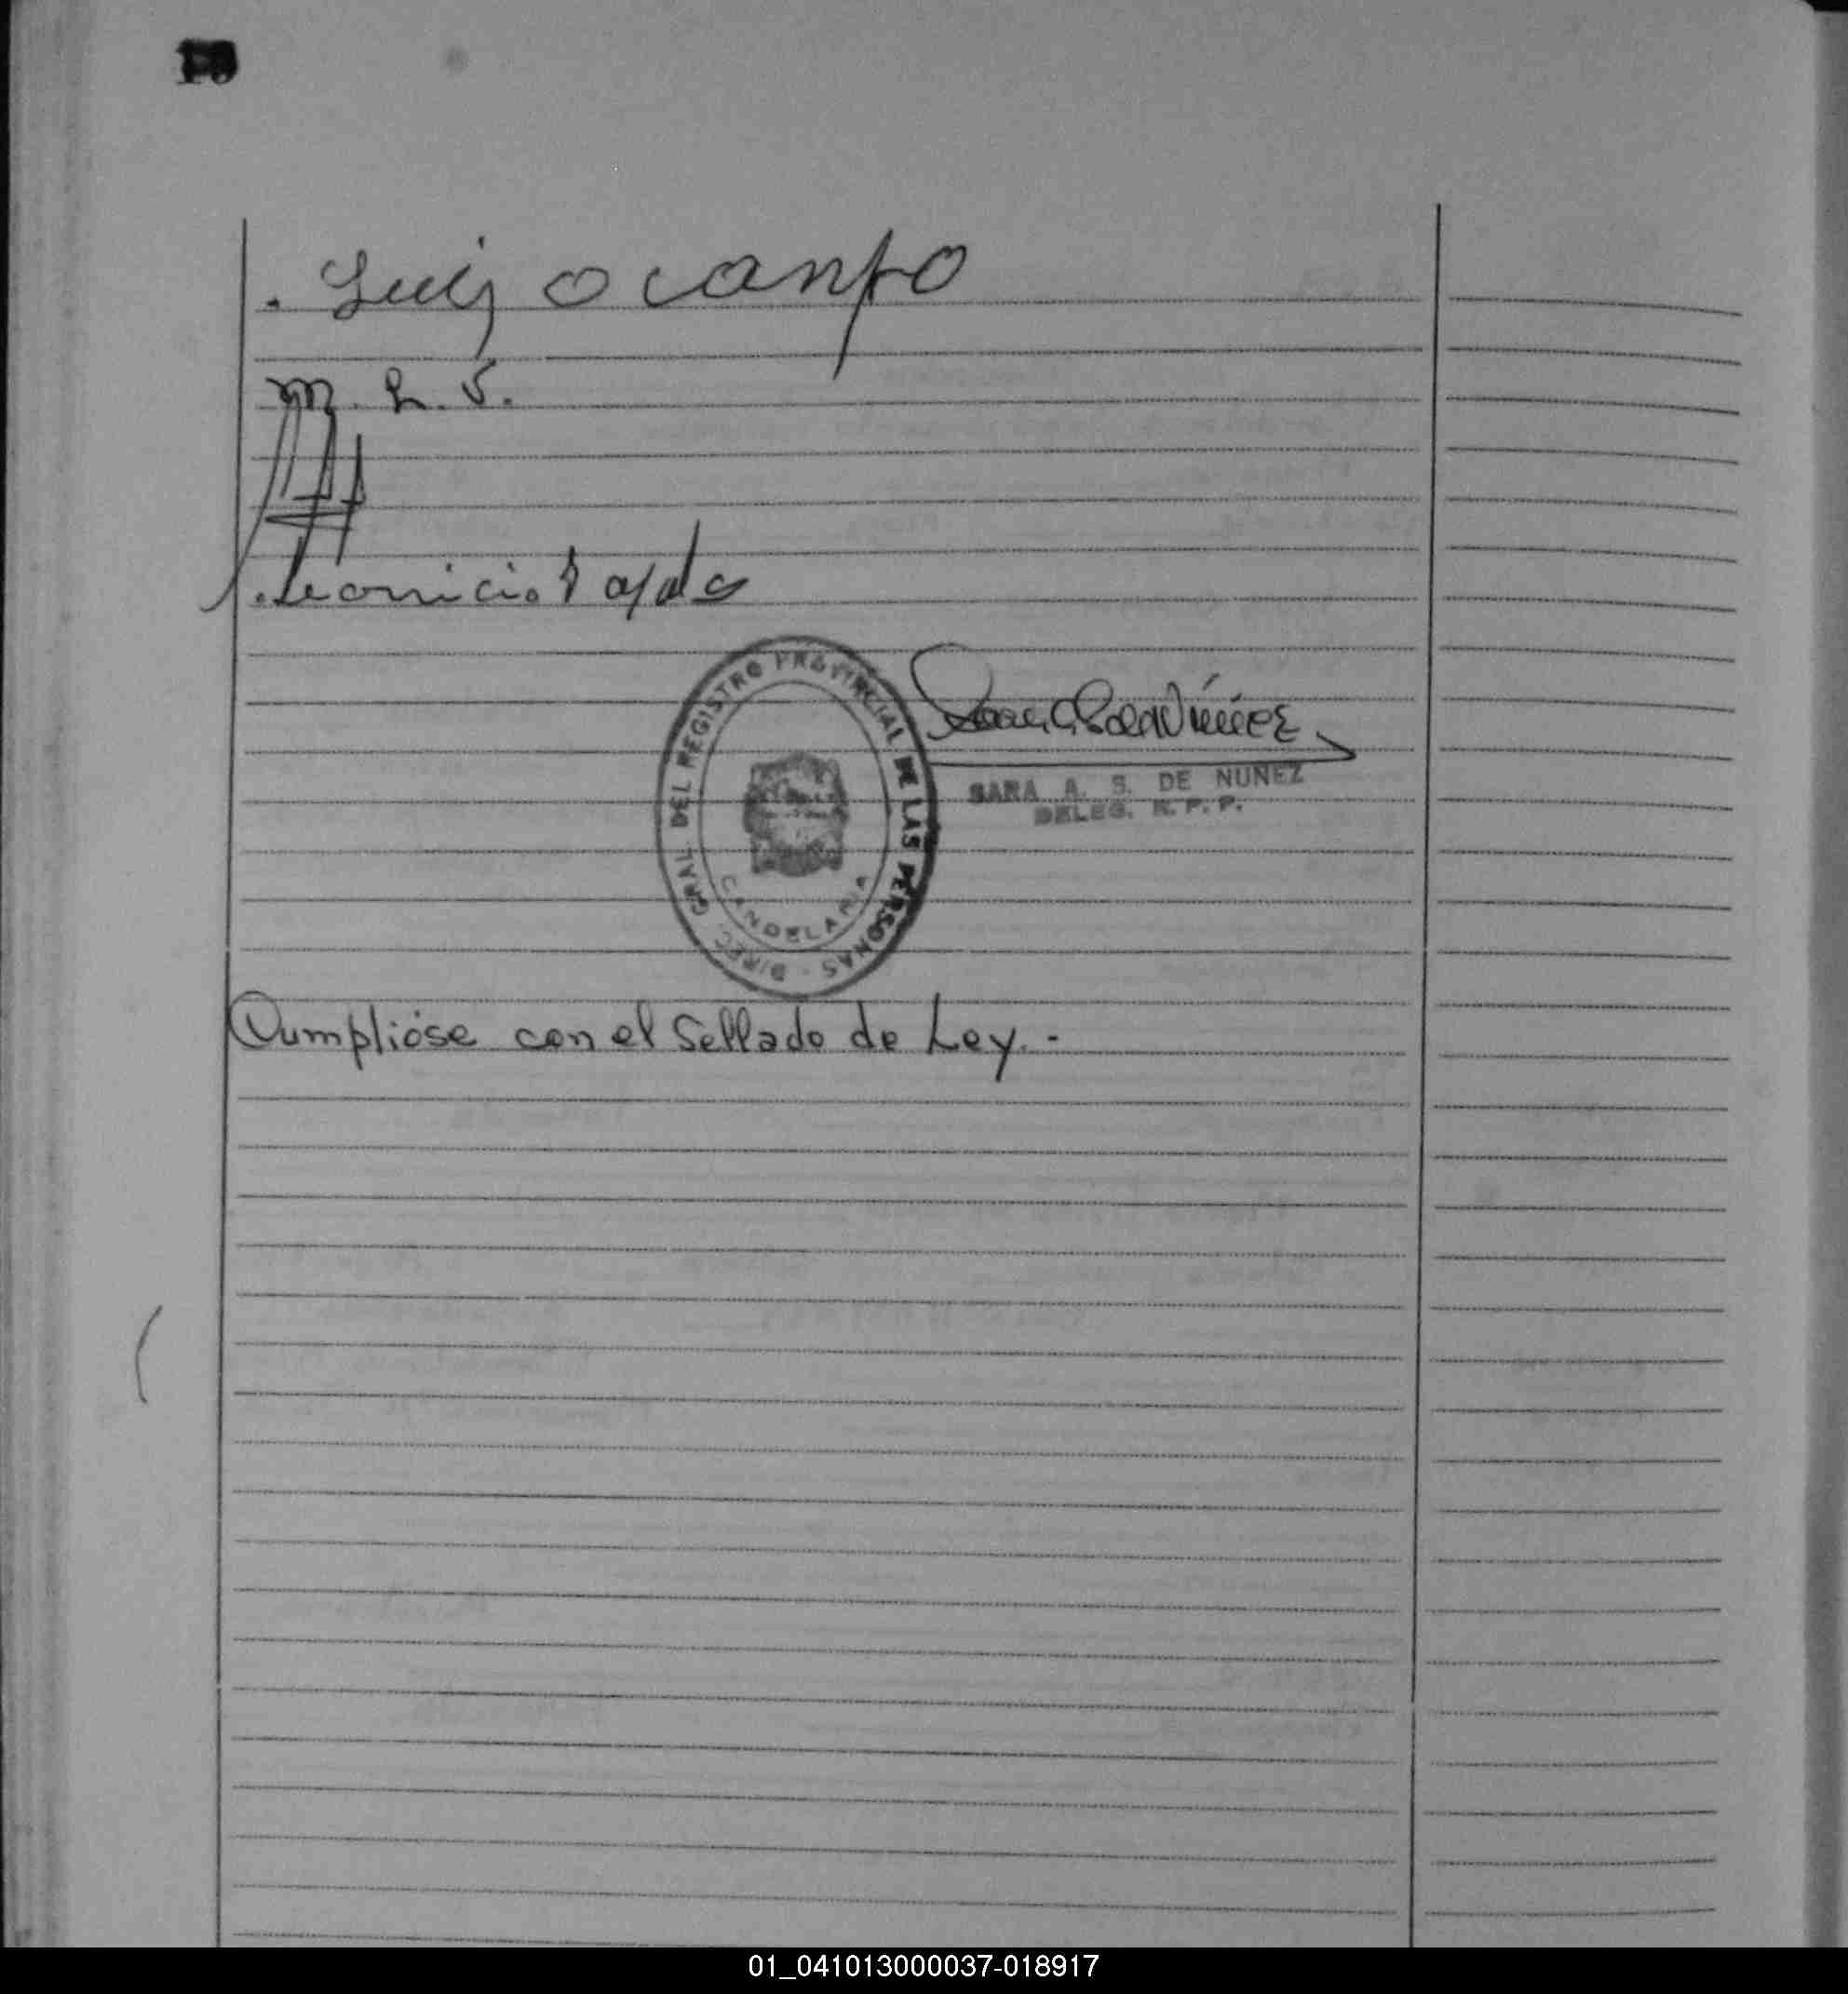 Luis Ocanpo
M. L. V.
Leonicio
DIREC. GRAL. DEL REGISTRO PROVINCIAL DE LAS PERSONAS
CANDELARIA
SARA A. S. DE NUÑEZ
DELEG. R. P. P.
Cumplióse con el Sellado de Ley.-
01_041013000037-018917